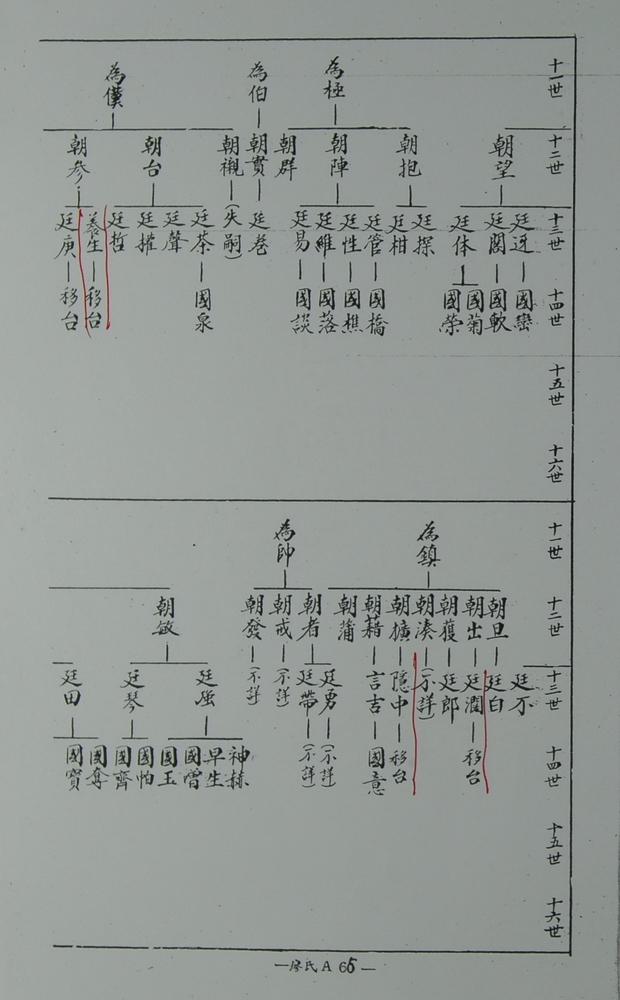 十一世
十二世
十三世
十四世
十五世
十六世
為極
為伯
為儀
朝望
朝抱
朝陣
朝群
朝貫
朝襯
朝台
朝參
廷
廷閣
廷体
廷探
廷柑
廷管
廷性
廷維
廷易
廷卷
(失嗣)
廷茶
廷聲
廷擢
廷哲
養生
廷庚
國巒
國軟
國菊
國榮
國橋
國樵
國落
國談
國泉
移台
移台
十一世
十二世
十三世
十四世
十五世
十六世
為鎮
為帥
朝旦
朝出
朝獲
朝湊
朝擴
朝藉
朝蒲
朝者
朝戒
朝發
朝敏
廷不
廷白
廷潤
廷郎
(不詳)
隠中
言吉
廷勇
廷帶
(不詳)
(不詳)
廷強
廷琴
廷田
移台
移台
國意
(不詳)
(不詳)
神
早生
國曾
國玉
國怕
國齊
國奪
國寶
—廖氏 A 65—